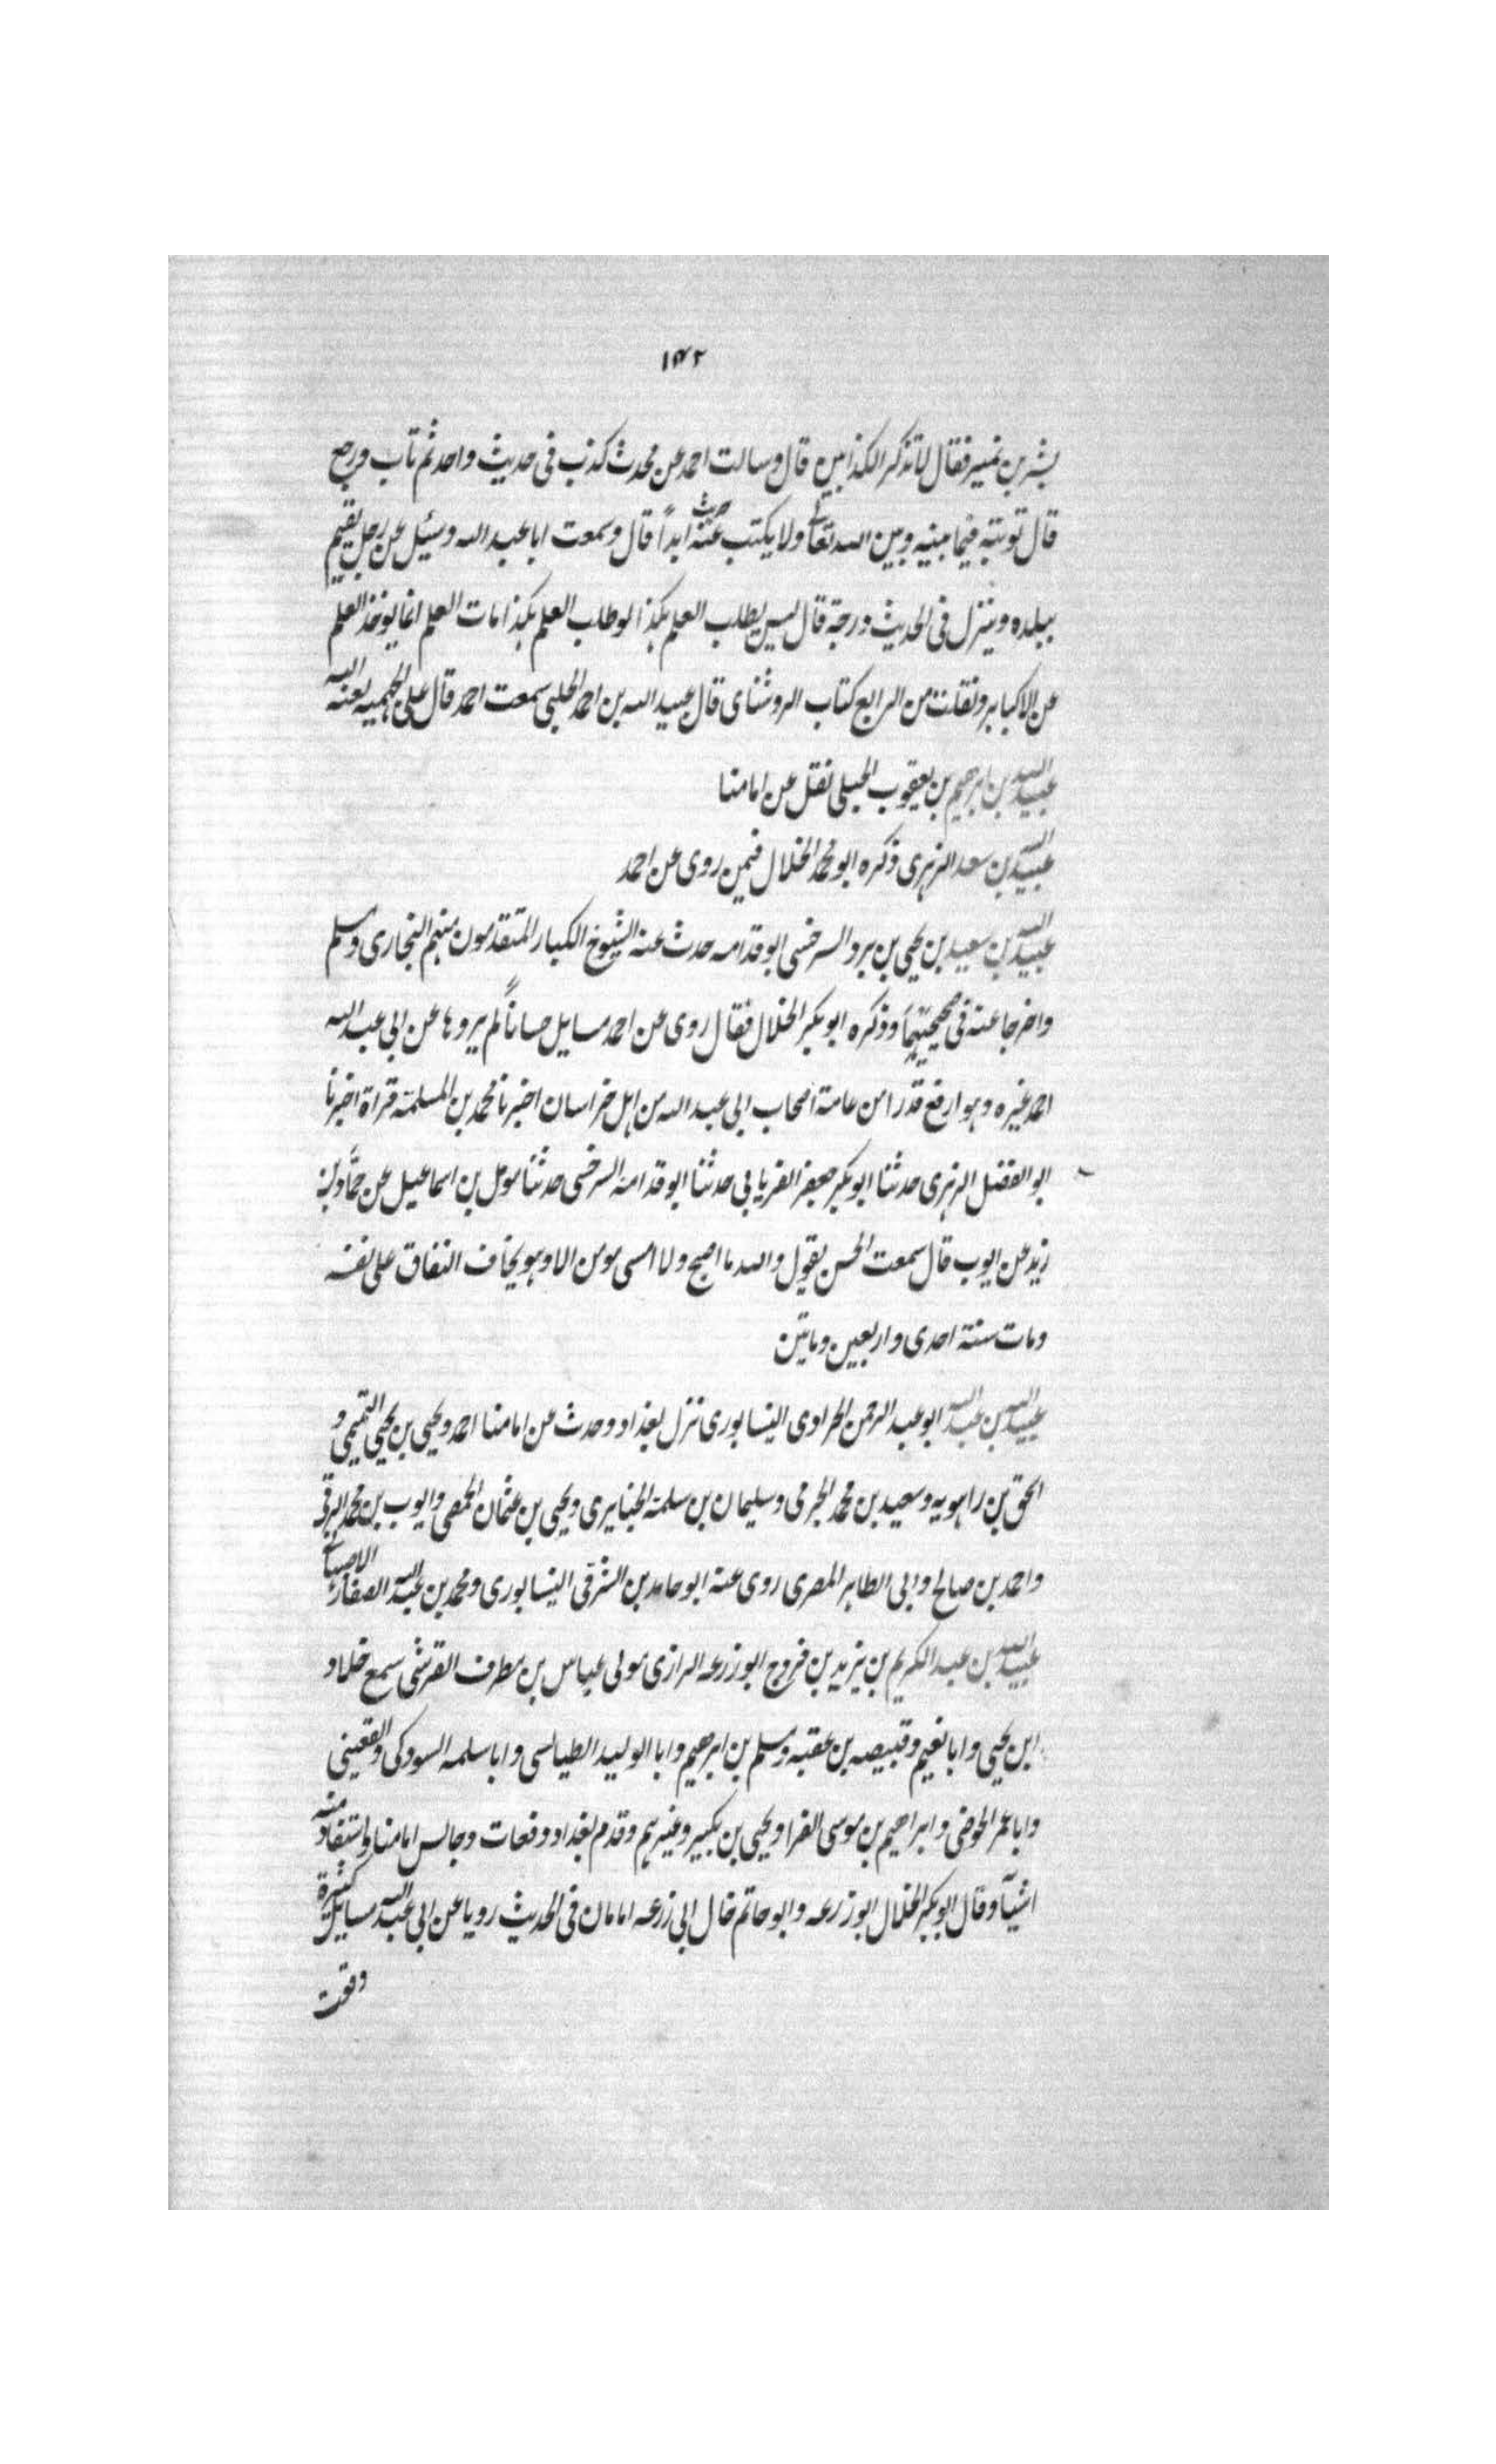 ١٤٢
بشر بن نمير فقال لا تذكر الكذابين قال وسالت احمد عن محدث كذب فى حديث واحد ثم تاب ورجع
قال توبته فيما بينه وبين الله تعالى ولا يكتب عنه حديث ابداً قال وسمعت ابا عبد الله وسئيل عن رجل يقيم
ببلده وينزل فى الحديث درجة قال ليس يطلب العلم هكذا لو طلب العلم هكذا مات العلم انما يوخذ العلم
عن الاكابر ونقلت من الرابع كتاب الروشناى قال عبيد الله بن احمد الحلبى سمعت احمد قال على الجهميه لعنه الله
عبيد الله بن ابرهيم بن يعقوب الجبلى نقل عن امامنا
عبيد الله بن سعد الزهرى ذكره ابو محمد الخلال فيمن روى عن احمد
عبيد الله بن سعيد بن يحيى بن برد السرخسى ابو قدامه حدث عنه الشيوخ الكبار المتقدمون منهم البخارى ومسلم
واخرجا عنه فى صحيحيهما وذكره ابو بكر الخلال فقال روى عن احمد مسايل حساناً لم يروها عن ابى عبد الله
احد غيره وهو ارفع قدرا من عامة اصحاب ابى عبد الله من اهل خراسان اخبرنا محمد بن المسلمة قراة اخبرنا
ابو الفضل الزهرى حدثنا ابو بكر جعفر الفريابى حدثنا ابو قدامه السرخسى حدثنا مومل بن اسماعيل عن حماد بن
زيد عن ايوب قال سمعت الحسن يقول والله ما اصبح ولا امسى مومن الا وهو يخاف النفاق على نفسه
ومات سنة احدى واربعين ومايتن
عبيد الله بن عبد الله ابو عبد الرحمن الحرادى النيسابورى نزل بغداد وحدث عن امامنا احمد ويحيى بن يحيى التميمى و
اسحق بن راهويه وسعيد بن محمد الجرمى وسليمان بن سلمة الخبايرى ويحيى بن عثمان الحمصى وايوب بن محمد الرقى
واحمد بن صالح وابى الطاهر المصرى روى عنه ابو حامد بن الشرقى النيسابورى ومحمد بن عبد الله الصفار الاصبهانى
عبيد الله بن عبد الكريم بن يزيد بن فروج ابو زرعه الرازى مولى عباس بن مطرف القرشى سمع خلاد
ابن يحيى وابا نعيم وقبيصه بن عقبه ومسلم بن ابرهيم وابا الوليد الطيالسى وابا سلمه السودكى والقعينى
وابا عمر الحوضى وابراهيم بن موسى الفرا ويحيى بن بكير وغيرهم وقدم بغداد دفعات وجالس امامنا واستفاد منه
اشيآ وقال ابو بكر الخلال ابو زرعه وابو حاتم خال ابى زرعه امامان فى الحديث رويا عن ابى عبد الله مسايل كثيرة
وقعت